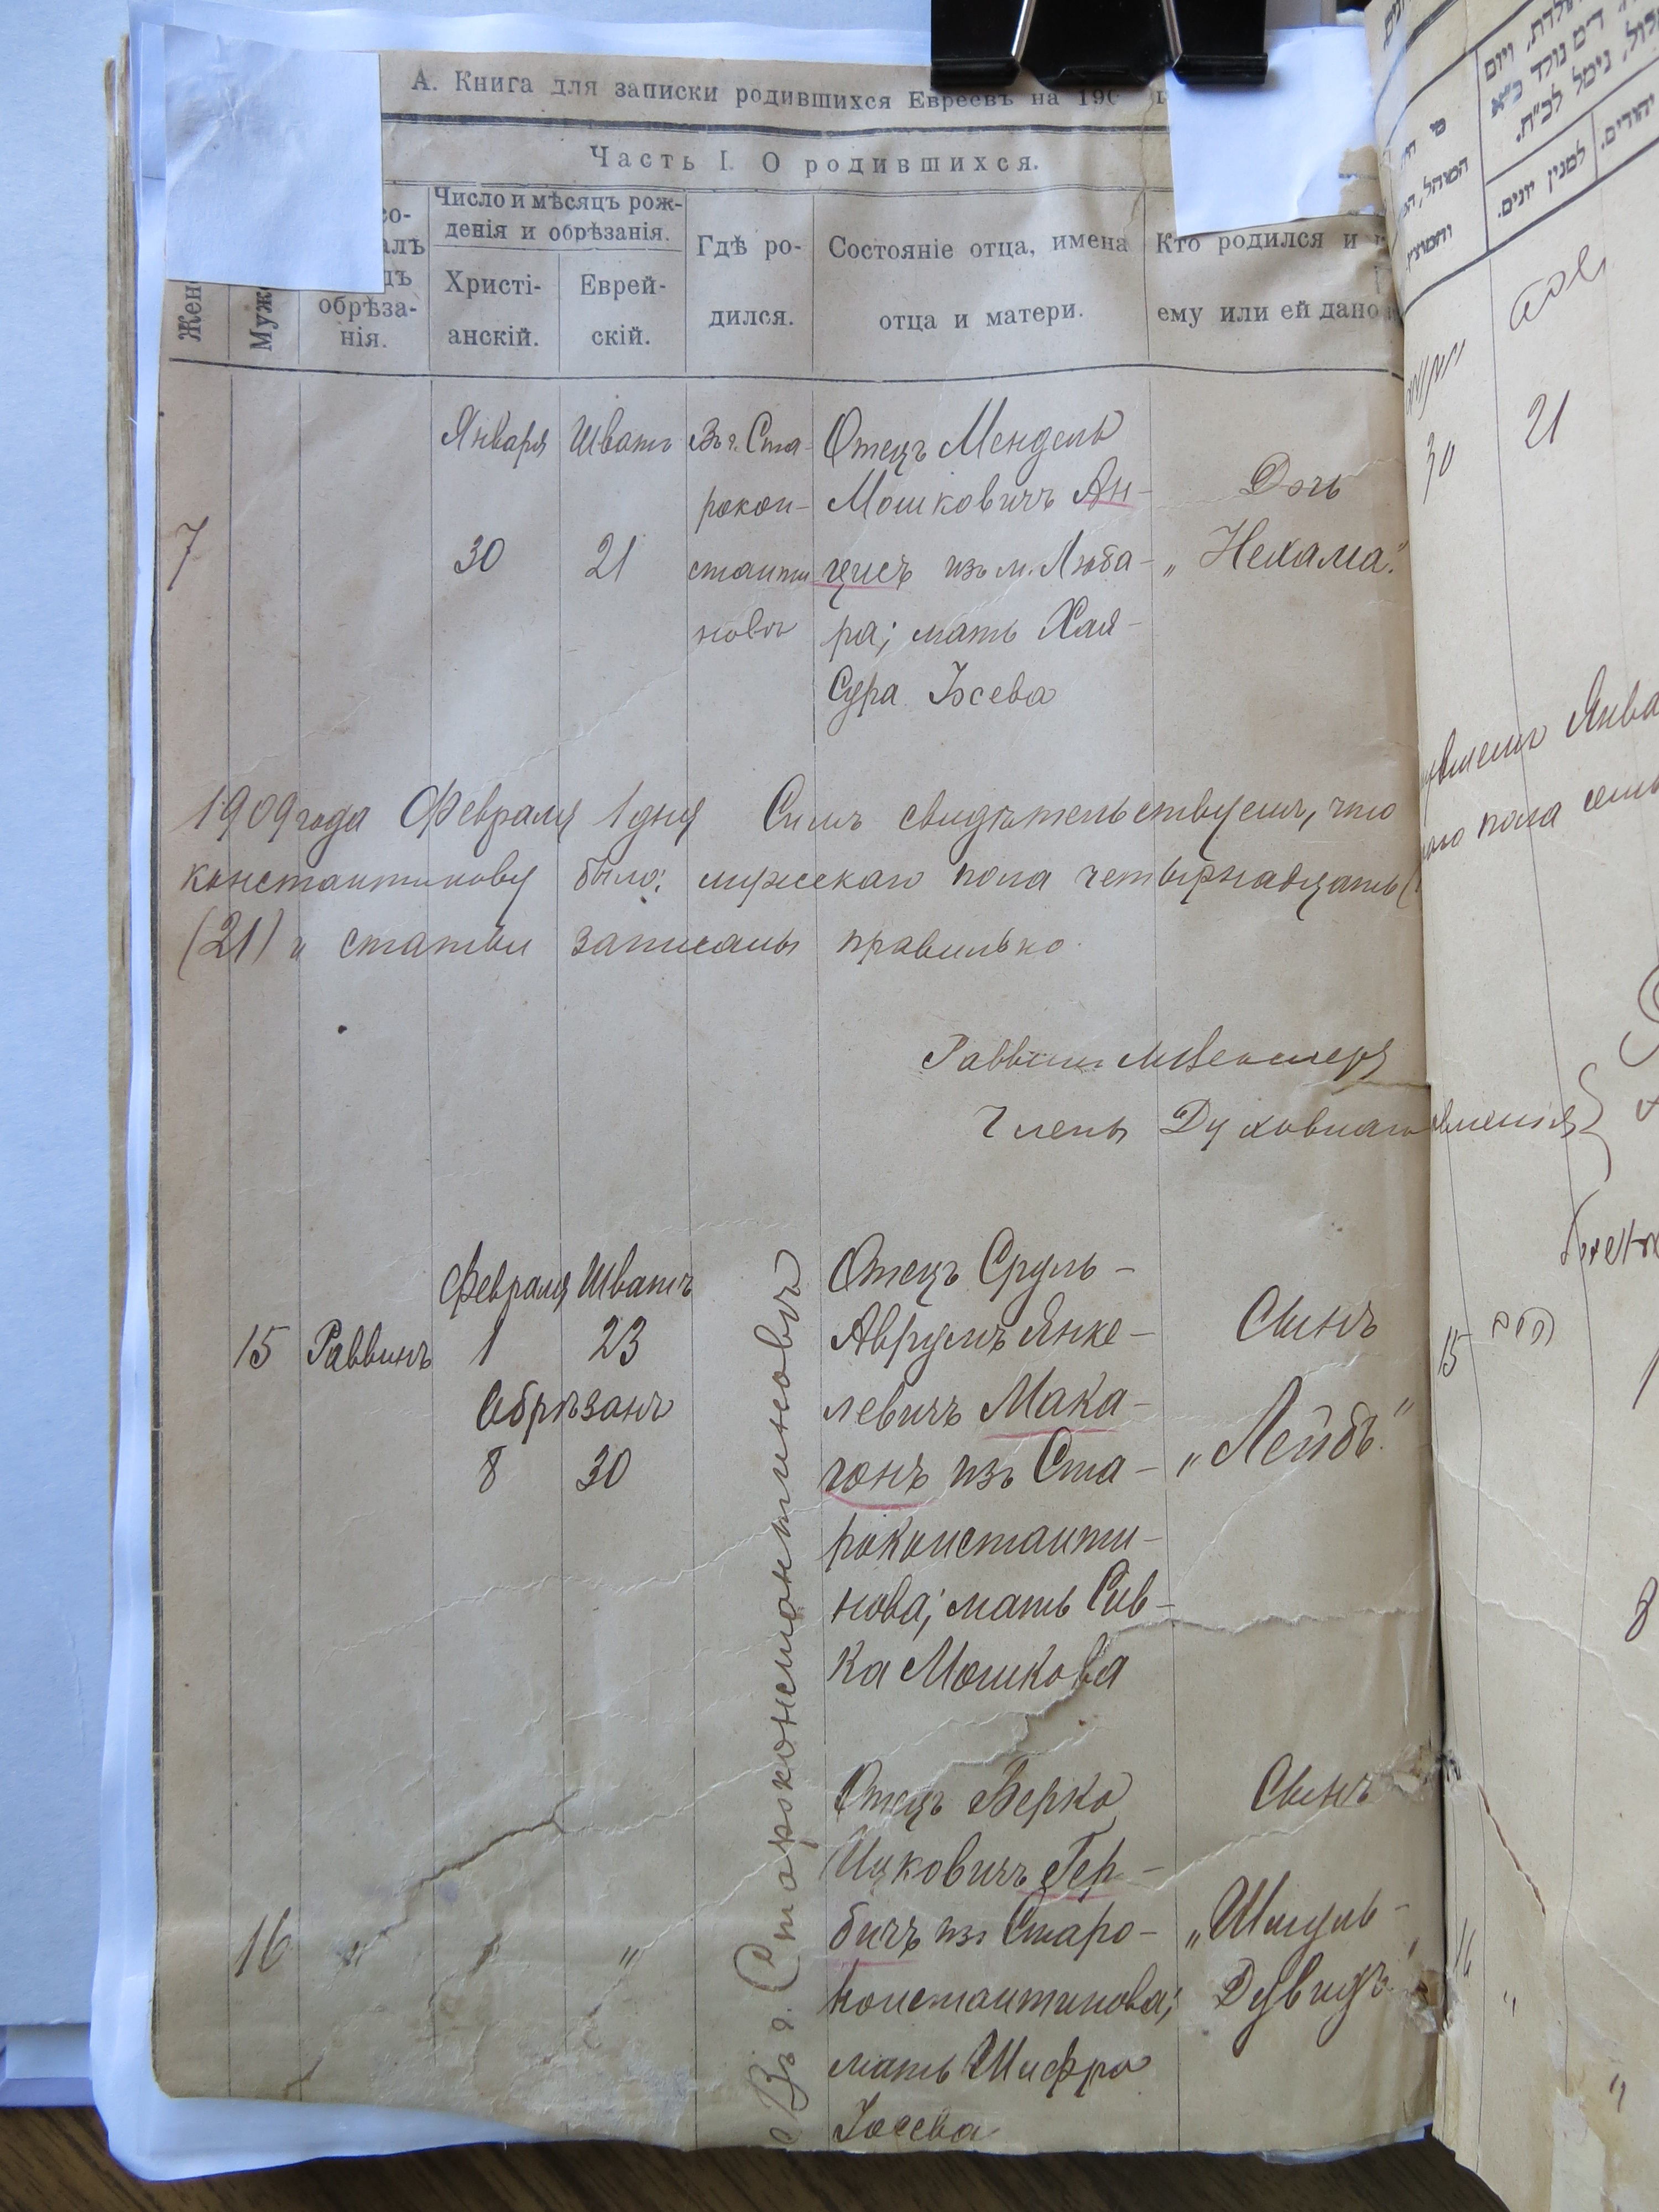 А. Книга для записки родившихся Евреевъ на 190
Часть I. О родившихся.
Жен
Муже
обрѣза-
нія.
Число и мѣсяцъ рож-
денія и обрѣзанія.
Христі-
анскій.
Еврей-
скій.
Гдѣ ро-
дился.
Состояніе отца, имена
отца и матери.
Кто родился и
ему или ей дано
7
Января
30
Шватъ
21
Въ г. Ста-
рокон-
станти
новѣ
Отецъ Мендель
Мошковичъ Ан-
цисъ изъ м. Люба-
ра; мать Хая-
Сура Іосева
Дочь
„Нехама“.
30
21
1909 года Февраля 1 дня Симъ свидѣтельствуемъ, что
константинову было: мужескаго пола четырнадцать
(21) и статьи записаны правильно.
Раввинъ
Члены Духовнаго
15
Раввинъ
Февраля
1
Шватъ
23
Обрѣзанъ
8
30
Въ г. Староконстантиновѣ
Отецъ Сруль-
Аврумъ Янке-
левичъ Мака-
гонъ изъ Ста-
роконстанти-
нова; мать Сив-
ка Мошкова
Сынъ
„Лейбъ“.
15
8
16
"
"
"
Отецъ Берко
Ицковичъ Гер-
бичъ изъ Старо-
константинова;
мать Шифра
Іосева
Сынъ
„Шмуль-
Дувидъ“.
16
"
"